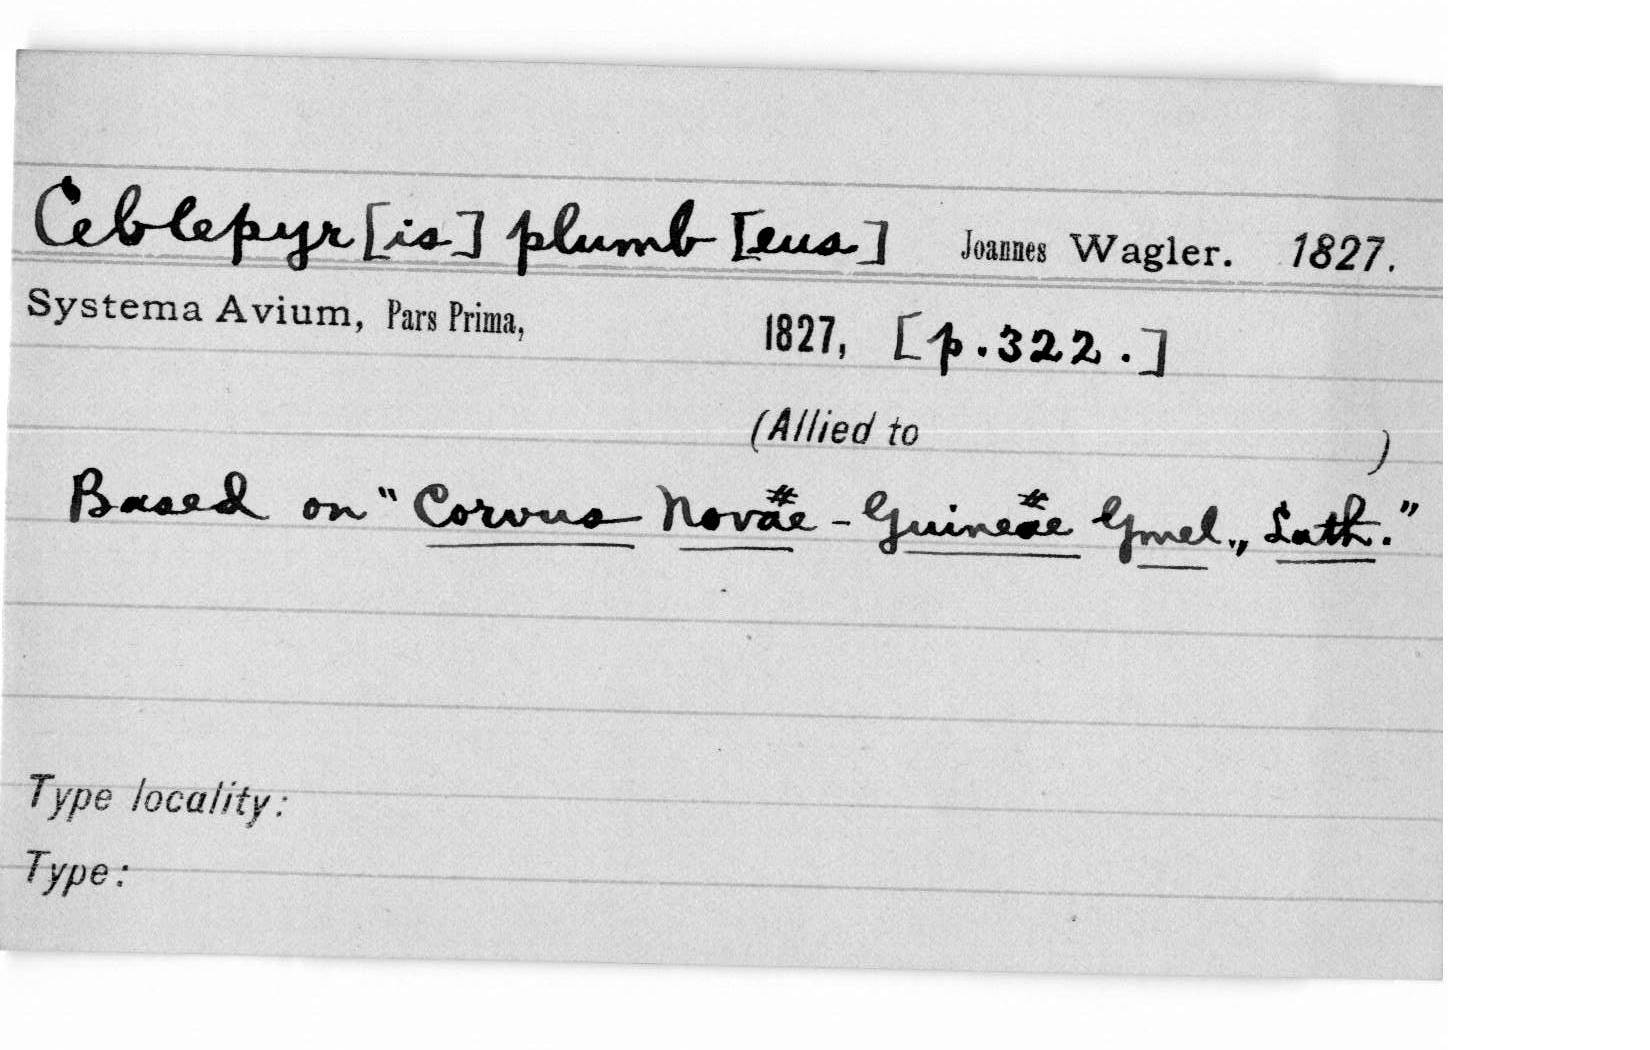 Ceblepyr[is] plumb[eus] Joannes Wagler. 1827.
Systema Avium, Pars Prima, 1827, [p. 322.]
(Allied to )
Based on "Corvus Novæ-Guineæ Gmel., Lath."
Type locality:
Type: